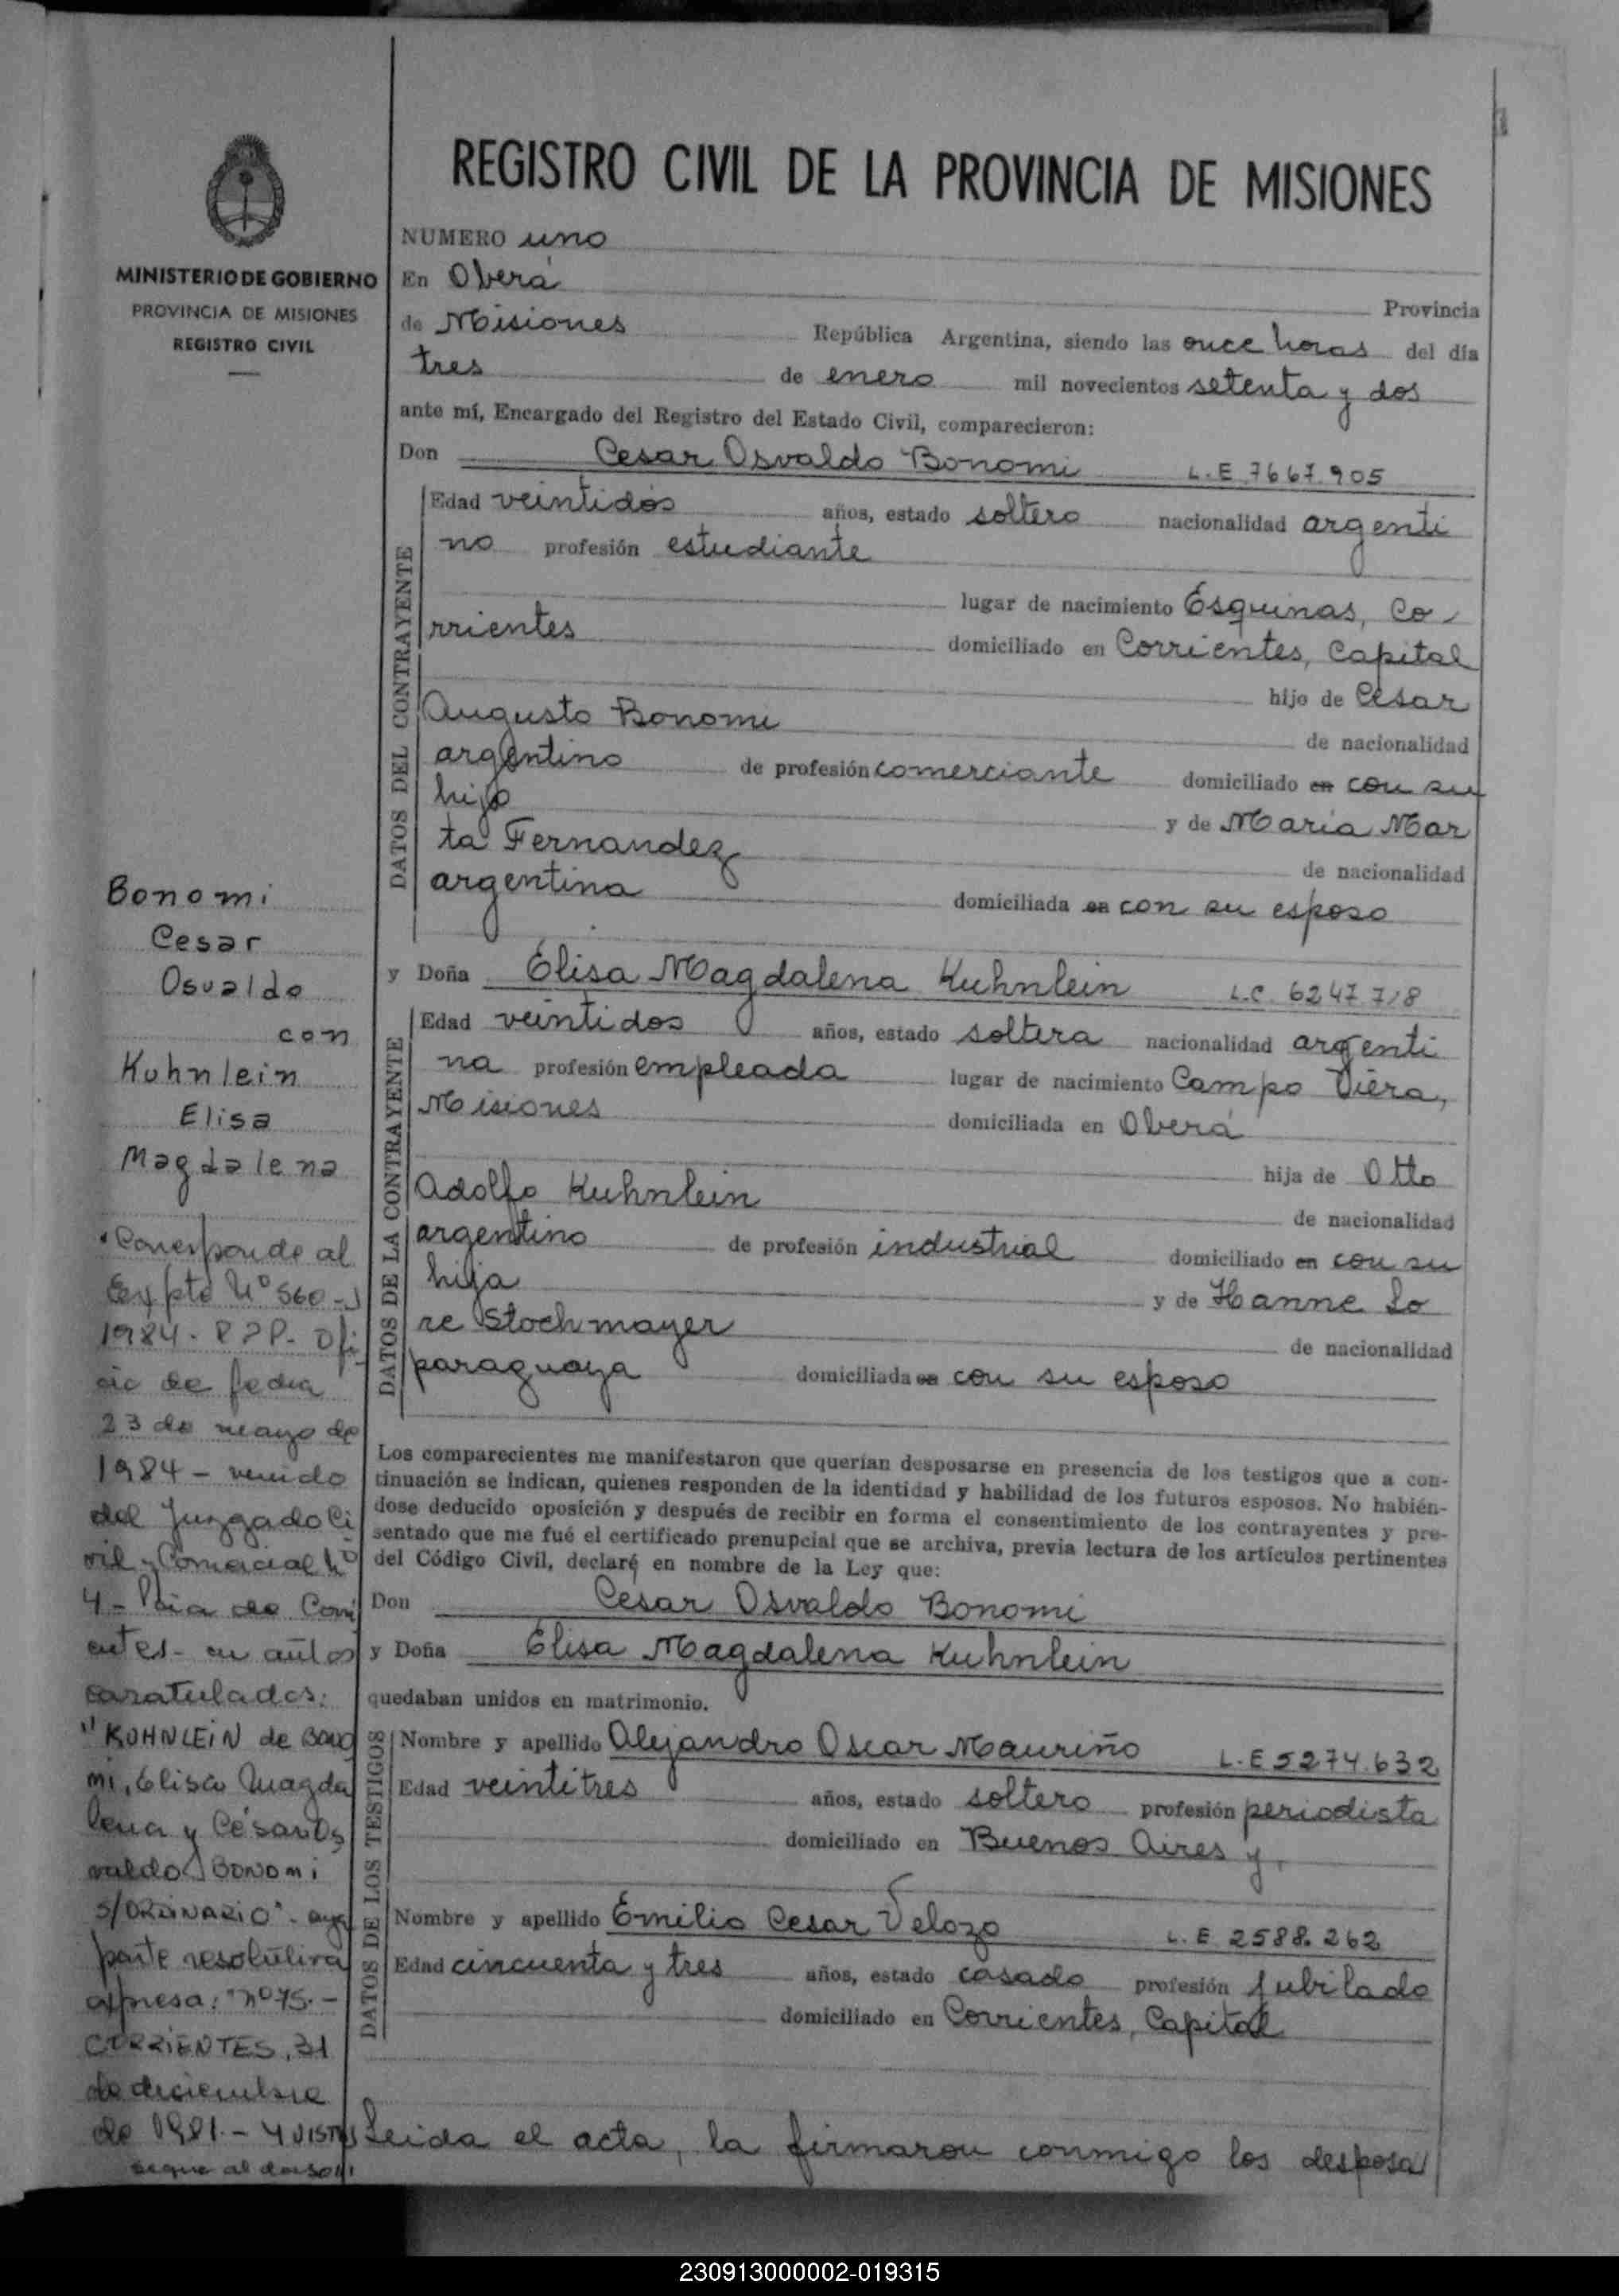 REGISTRO CIVIL DE LA PROVINCIA DE MISIONES
MINISTERIO DE GOBIERNO
PROVINCIA DE MISIONES
REGISTRO CIVIL
NUMERO uno
En Oberá
Provincia
de Misiones República Argentina, siendo las once horas del día
tres de enero mil novecientos setenta y dos
ante mí, Encargado del Registro del Estado Civil, comparecieron:
Don Cesar Osvaldo Bonomi L.E 7667.905
DATOS DEL CONTRAYENTE
Edad veintidos años, estado soltero nacionalidad argenti
no profesión estudiante
lugar de nacimiento Esquinas, Co-
rrientes domiciliado en Corrientes, Capital
hijo de César
Augusto Bonomi de nacionalidad
argentino de profesión comerciante domiciliado en con su
hijo y de Maria Mar
ta Fernandez de nacionalidad
argentina domiciliada en con su esposo
y Doña Elisa Magdalena Kuhnlein L.C. 6247.718
DATOS DE LA CONTRAYENTE
Edad veintidos años, estado soltera nacionalidad argenti
na profesión empleada lugar de nacimiento Campo Viera,
Misiones domiciliada en Oberá
hija de Otto
Adolfo Kuhnlein de nacionalidad
argentino de profesión industrial domiciliado en con su
hija y de Hanne Lo
re Stochmayer de nacionalidad
paraguaya domiciliada en con su esposo
Los comparecientes me manifestaron que querían desposarse en presencia de los testigos que a con-
tinuación se indican, quienes responden de la identidad y habilidad de los futuros esposos. No habién-
dose deducido oposición y después de recibir en forma el consentimiento de los contrayentes y pre-
sentado que me fué el certificado prenupcial que se archiva, previa lectura de los artículos pertinentes
del Código Civil, declaré en nombre de la Ley que:
Don Cesar Osvaldo Bonomi
y Doña Elisa Magdalena Kuhnlein
quedaban unidos en matrimonio.
DATOS DE LOS TESTIGOS
Nombre y apellido Alejandro Oscar Mauriño L.E 5274.632
Edad veintitres años, estado soltero profesión periodista
domiciliado en Buenos Aires y
Nombre y apellido Emilio Cesar Velozo L.E. 2588.262
Edad cincuenta y tres años, estado casado profesión jubilado
domiciliado en Corrientes, Capital
Leida el acta, la firmaron conmigo los desposa
Bonomi
Cesar
Osvaldo
con
Kuhnlein
Elisa
Magdalena
Corresponde al
Expte Nº 560-J
1984- RPP- Ofi
cio de fecha
23 de mayo de
1984 - venido
del Juzgado Ci
vil y Comercial Nº
4 - Pcia de Corri
entes - en autos
caratulados:
"KUHNLEIN de Bono
mi, Elisa Magda
lena y César Os
valdo BONOMI
S/ORDINARIO"- cuya
parte resolutiva
expresa: "Nº 75.-
CORRIENTES, 31
de diciembre
de 1981.- Y VISTOS
sigue al dorso
230913000002-019315